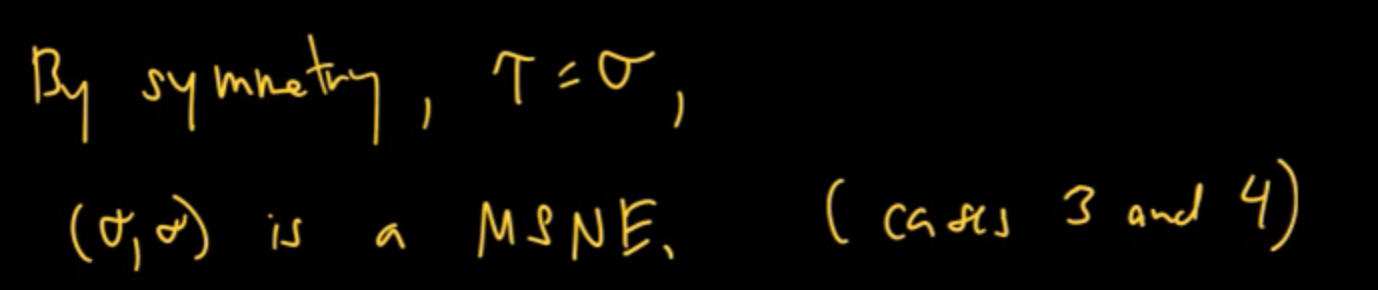 By symmetry, τ = σ,
(σ, σ) is a MSNE. (cases 3 and 4)